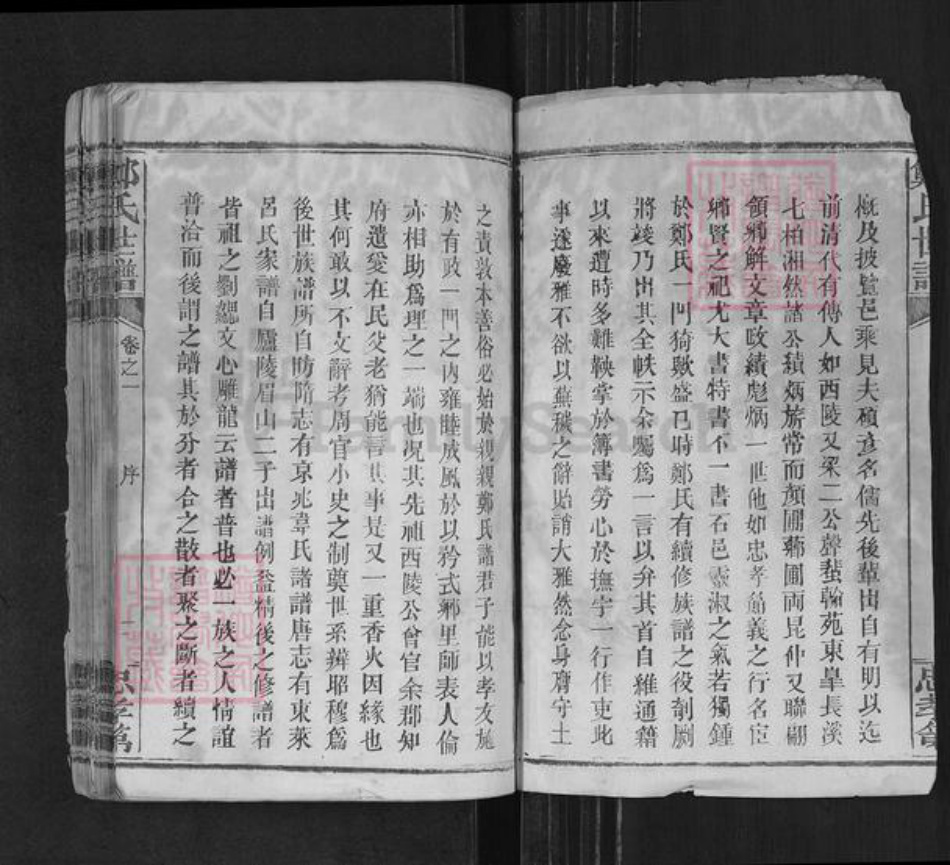 鄭氏世譜
忠孝堂
概及披覽邑乘見夫碩彥名儒先後輩出自有明以迄
前清代有傳人如西陵又梁二公聲蜚翰苑東皋長溪
七柏湘然諸公績炳旂常而顏圃鄰圃両昆仲又聯翩
領鄉解文章政績彪炳一世他如忠孝節義之行名宦
鄉賢之祀尤大書特書不一書石邑靈淑之氣若獨鍾
於鄭氏一門猗歟盛已時鄭氏有續修族譜之役剞劂
將竣乃出其全帙示余囑爲一言以弁其首自維通籍
以來遭時多難鞅掌於簿書勞心於撫字一行作吏此
事遂廢雅不欲以蕪穢之辭貽誚大雅然念身膺守土
之責敦本善俗必始於親親鄭氏諸君子能以孝友施
於有政一門之內雍睦成風於以矜式鄉里師表人倫
亦相助爲理之一端也况其先祖西陵公會官余郡知
府遺愛在民父老猶能言其事是又一重香火因緣也
其何敢以不文辭考周官小史之制奠世系辨昭穆爲
後世族譜所自昉隋志有京兆韋氏諸譜唐志有東萊
呂氏家譜自廬陵眉山二子出譜例益精後之修譜者
皆祖之劉勰文心雕龍云譜者普也必一族之人情誼
普洽而後謂之譜其於分者合之散者聚之斷者續之
鄭氏世譜
卷之一
序
二
忠孝堂
FamilySearch